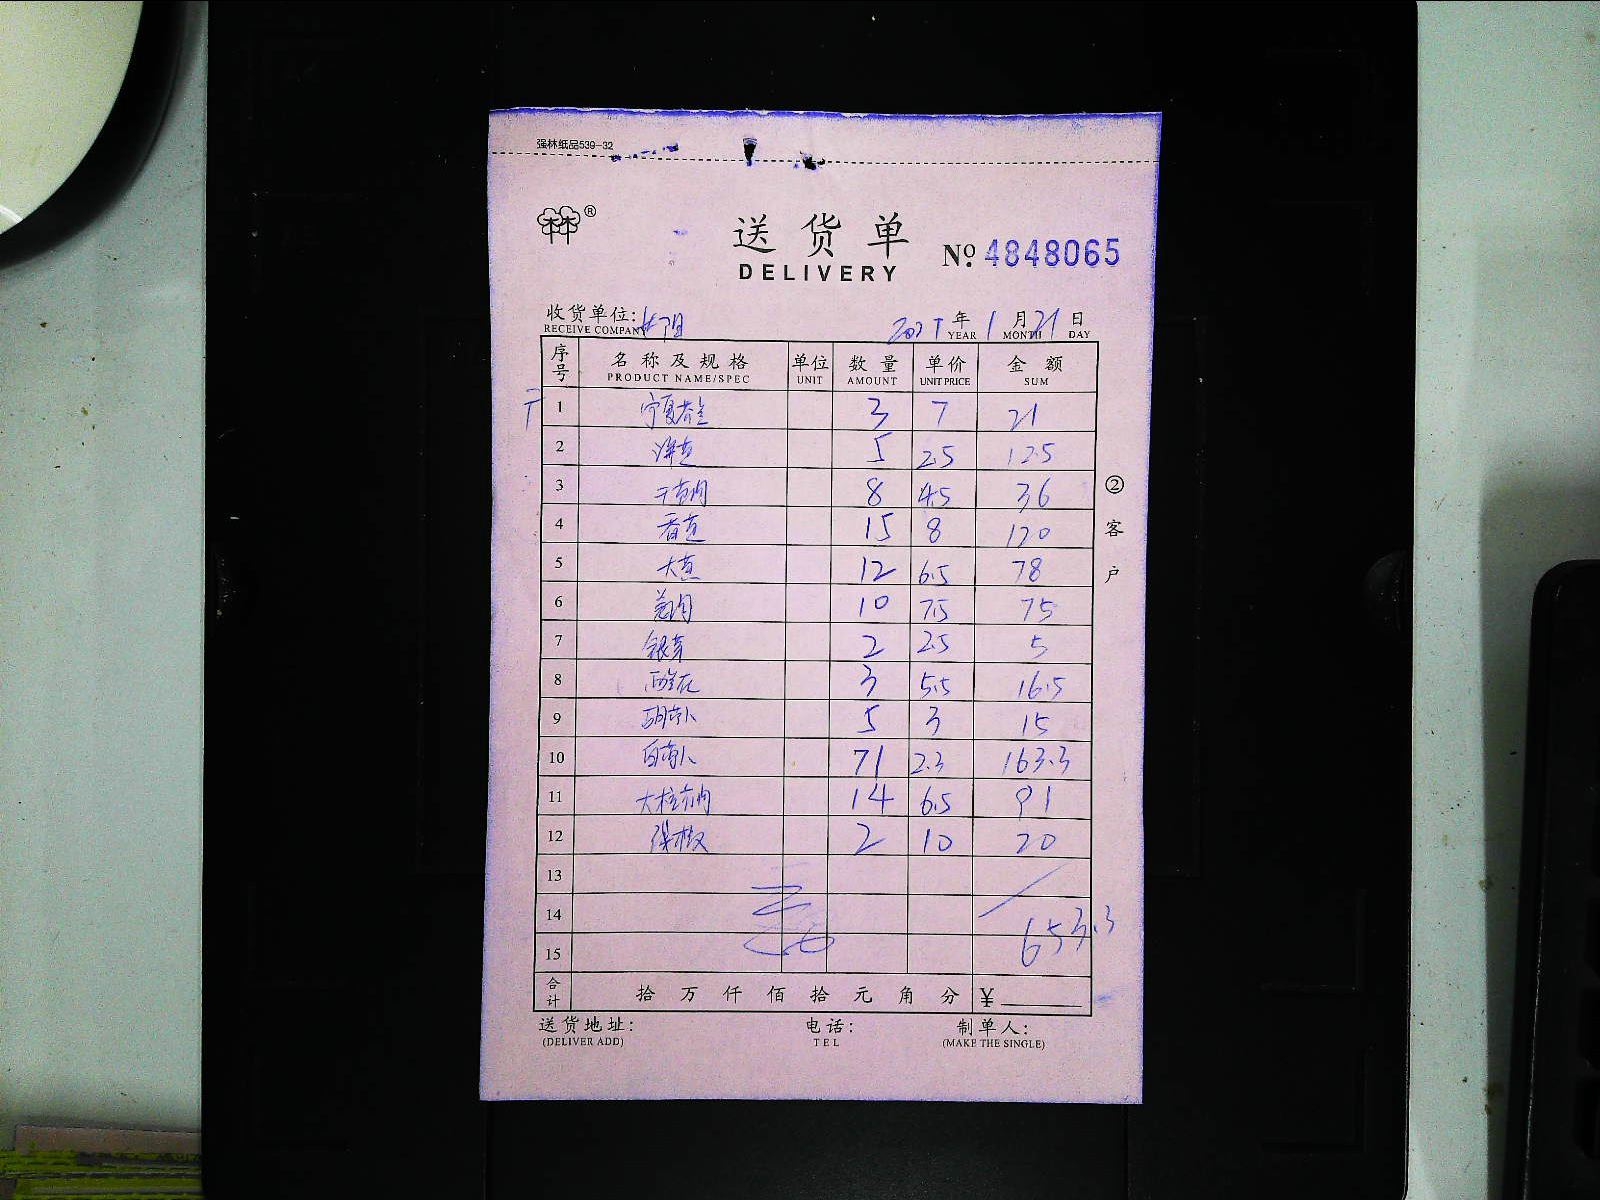 强林纸品539-32
林林®
送货单
DELIVERY
№ 4848065
收货单位:
RECEIVE COMPANY
年 1 月 21 日
YEAR MONTH DAY
序号 名称及规格 单位 数量 单价 金额
PRODUCT NAME/SPEC UNIT AMOUNT UNIT PRICE SUM
1 宁夏 3 7 21
2 5 2.5 12.5
3 8 4.5 36
4 香 15 8 120
5 大 12 6.5 78
6 10 7.5 75
7 银芽 2 2.5 5
8 3 5.5 16.5
9 胡 5 3 15
10 白 71 2.3 163.3
11 大 14 6.5 91
12 椒 2 10 20
13
14
653.3
15
合计 拾 万 仟 佰 拾 元 角 分 ¥
②客户
送货地址: 电话: 制单人:
(DELIVER ADD) TEL (MAKE THE SINGLE)